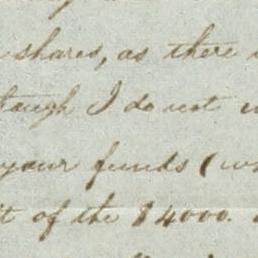 shares, as there
I do not
your funds (
of the $4000.